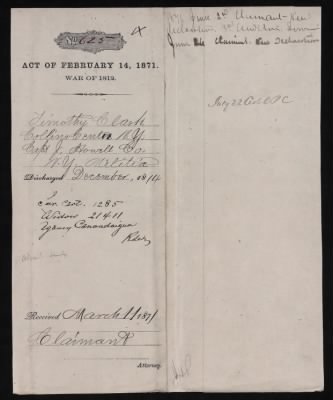 No. 625
ACT OF FEBRUARY 14, 1871.
WAR OF 1812.
Timothy Clark
Collins Centre N.Y.
Capt J. Howell Co.
N.Y. Militia
Discharged December, 1814
Sur. Cert. 1285
Widow 21411
Agency Canandaigua
Received March 11 1871
Claimant
Attorney.
June 2d Claimant New
declaration
June Claimant New Declaration